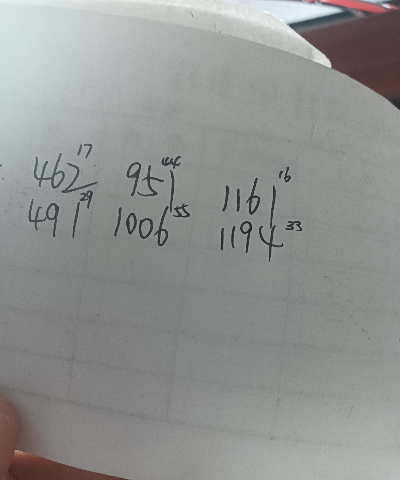 462 17 951 44 1161 16
491 29 1006 55 1194 33